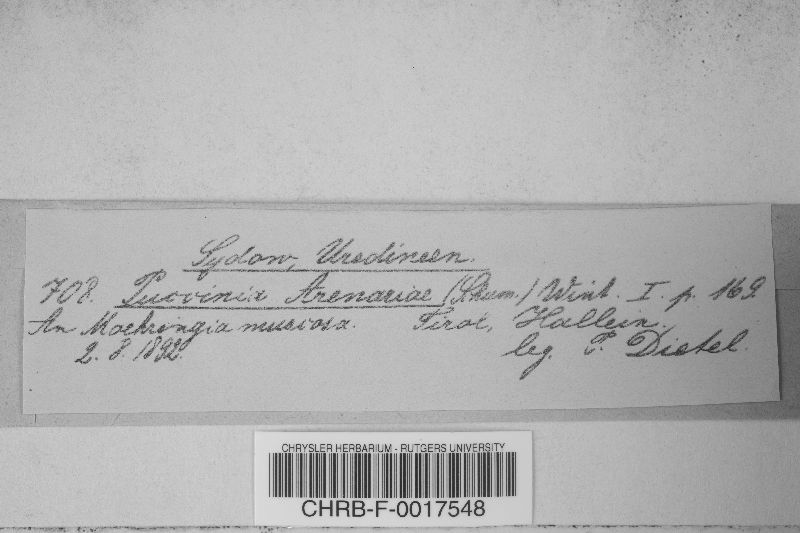 Sydow, Uredineen.
708. Puccinia Arenariae (Schum.) Wint. I. p. 169.
An Moehringia muscosa. Tirol, Hallein.
2. 8. 1892. leg. P. Dietel.
CHRYSLER HERBARIUM - RUTGERS UNIVERSITY
CHRB-F-0017548